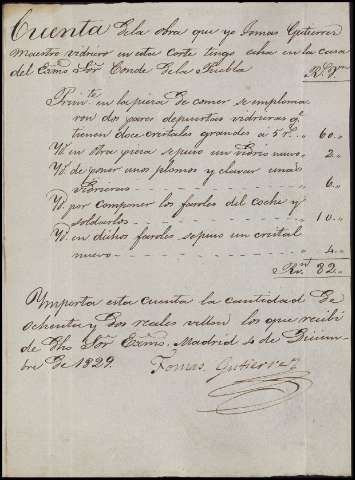 Cuenta de la obra que yo Tomas Gutierrez
Maestro vidriero en esta Corte tengo echa en la casa
del Exmo Sor Conde de la Puebla
Rs. Vn
Primte en la pieza de comer se emploma
ron dos pares de puertas vidrieras qe
tienen doce cristales grandes a 5 rs. " 60 "
Yd. en otra pieza se puso un vidrio nuevo " 2 "
Yd. de poner unos plomos y clavar unas
vidrieras " 6 "
Yd. por componer los faroles del coche y
soldarlos " 10 "
Yd. en dichos faroles se puso un cristal
nuevo " 4 "
Rs. vn 82 "
Ymporta esta cuenta la cantidad de
ochenta y dos reales vellon los que recibi
de dho Sor Exmo. Madrid 4 de Diciem-
bre de 1829.
Tomas Gutierrez